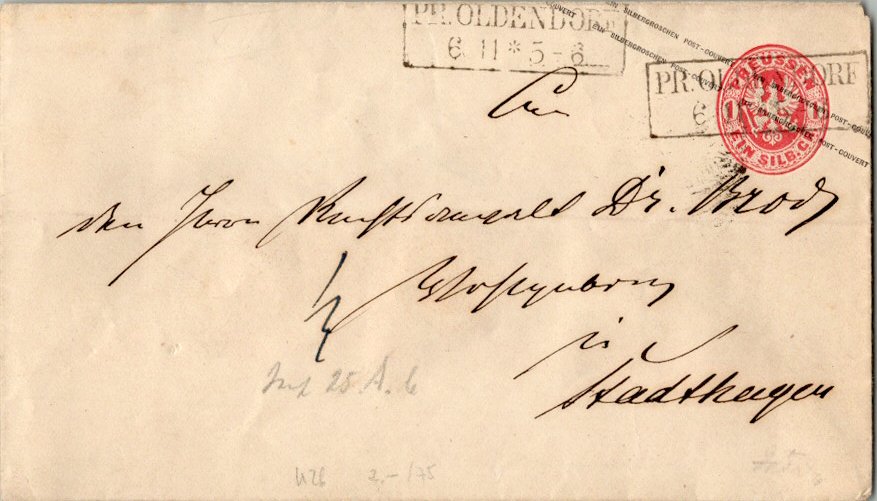 PR. OLDENDORF
6 11 * 5-6
EIN SILBERGROSCHEN POST-COUVERT
PR. OLDENDORF
6 11
PREUSSEN
1 1
EIN SILB. GR.
An
den Herrn Rechtsanwalt Dr.
Wohlgeboren
in
Stadthagen
1/2
25 A. b
U26 2,-/75